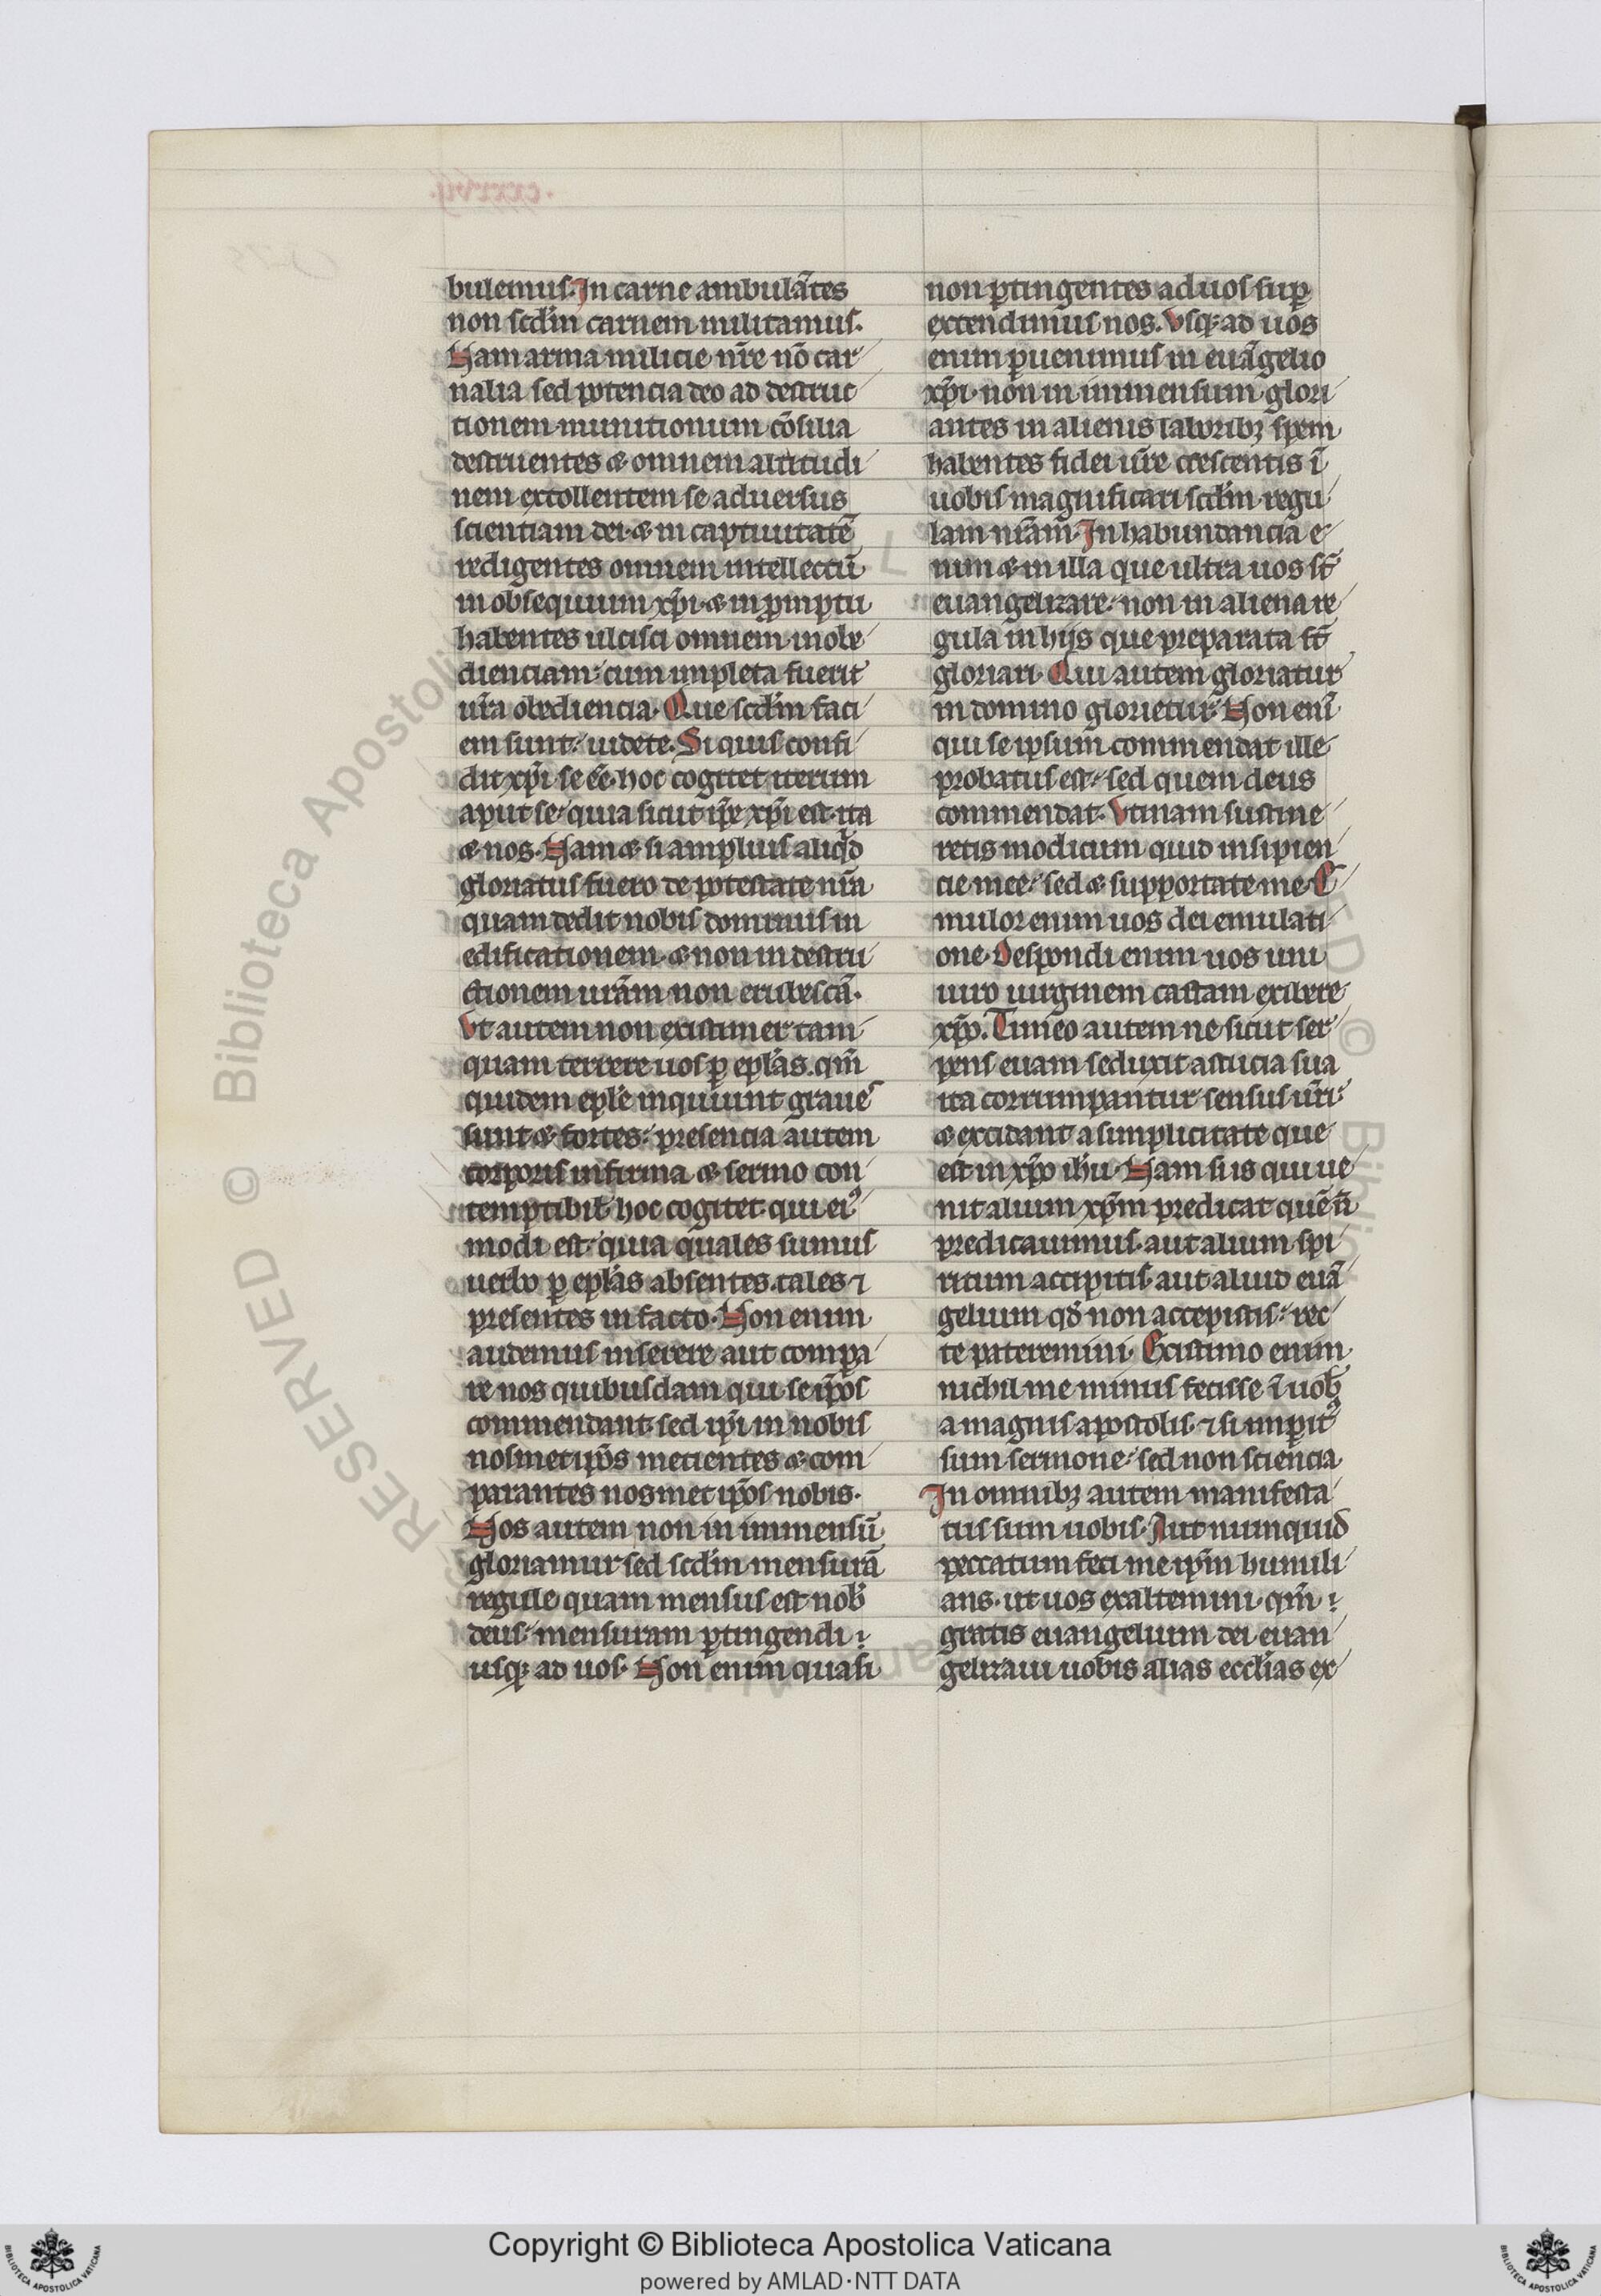 bulemus. In carne ambulãtes
non scd'm carnem militamus.
Nam arma milicie nr̃e nõ car
nalia sed potencia deo ad destruc
tionem munitionum cõsilia
destruentes & omnem altitudi
nem extollentem se aduersus
scientiam dei· & in captiuitatẽ
redigentes omnem intellectũ
in obsequium xp̃i· & in ꝓmptu
habentes ulcisci omnem inobe
dienciam· cum impleta fuerit
ur̃a obediencia. Que scd'm faci
em sunt· uidete. Si quis confi
dit xp̃i se eẽ· hoc cogitet iterum
aput se· quia sicut ip̃e xp̃i est· ita
& nos. Nam & si amplius aliqd̾
gloriatus fuero de potestate nr̃a
quam dedit nobis dominus in
edificationem· & non in destru
ctionem ur̃am· non erubescã.
Vt autem non existimer tam
quam terrere uos ꝑ epl̃as. qm̃
quidem epl̃e inquiunt graues
sunt & fortes· presencia autem
corporis infirma & sermo con
temptibil̃· hoc cogitet qui ei᾽
modi est· quia quales sumus
uerbo ꝑ epl̃as absentes. tales ⁊
presentes in facto. Non enim
audemus inserere aut compa
re nos quibusdam qui se ip̃os
commendant· sed ip̃i in nobis
nosmet ip̃os metientes & com
parantes nosmet ip̃os nobis.
Nos autem non in immensũ
gloriamur sed scd'm mensurã
regule quam mensus est nob̃
deus· mensuram ꝑtingendi
usq; ad uos. Non enim quasi
non ꝑtingentes ad uos suꝑ
extendimus nos. Vsq; ad uos
enim ꝑuenimus in euãgelio
xp̃i· non in immensum glori
antes in alienis laborib; spem
habentes fidei ur̃e crescentis ĩ
uobis magnificari scd'm regu
lam nr̃am. In habundancia e
nim & in illa que ultra uos st̃
euangelizare· non in aliena re
gula in hijs que preparata st̃
gloriari. Qui autem gloriatur
in domino glorietur. Non enĩ
qui se ipsum commendat ille
probatus est· sed quem deus
commendat. Vtinam sustine
retis modicum quid insipien
cie mee· sed & supportate me. E
mulor enim uos dei emulati
one. Despondi enim uos uni
uiro uirginem castam exibere
xp̃o. Timeo autem ne sicut ser
pens euam seduxit astucia sua
ita corrumpantur sensus ur̃i·
& excidant a simplicitate que
est in xp̃o ihũ. Nam si is qui ue
nit alium xp̃m predicat quẽ ñ
predicauimus· aut alium spi
ritum accipitis aut aliud euã
gelium qd̾ non accepistis· rec
te pateremini. Existimo enim
nichil me minus fecisse ĩ uob̃
a magnis apostolis. ⁊ si imꝑit᾽
sum sermone· sed non sciencia
In omnib; autem manifesta
tus sum uobis. Aut numquid
peccatum feci me ip̃m humili
ans· ut uos exaltemini· qm̃
gratis euangelium dei euan
gelizaui uobis alias eccl̃ias ex